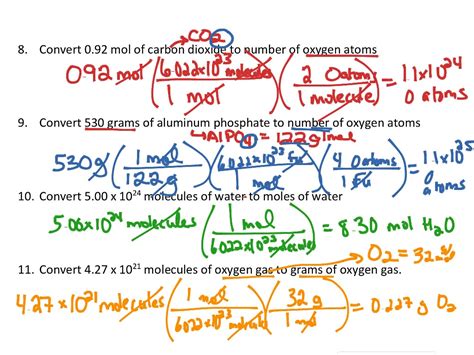 CO2
8. Convert 0.92 mol of carbon dioxide to number of oxygen atoms
0.92 mol (6.022x10^23 molecules / 1 mol) (2 O atoms / 1 molecule) = 1.1x10^24 O atoms
9. Convert 530 grams of aluminum phosphate to number of oxygen atoms
AlPO4 = 122 g/mol
530 g (1 mol / 122 g) (6.022x10^23 FU / 1 mol) (4 O atoms / 1 FU) = 1.1x10^25 O atoms
10. Convert 5.00 x 10^24 molecules of water to moles of water
5.00x10^24 molecules (1 mol / 6.022x10^23 molecules) = 8.30 mol H2O
O2 = 32 g/mol
11. Convert 4.27 x 10^21 molecules of oxygen gas to grams of oxygen gas.
4.27x10^21 molecules (1 mol / 6.022x10^23 molecules) (32 g / 1 mol) = 0.227 g O2